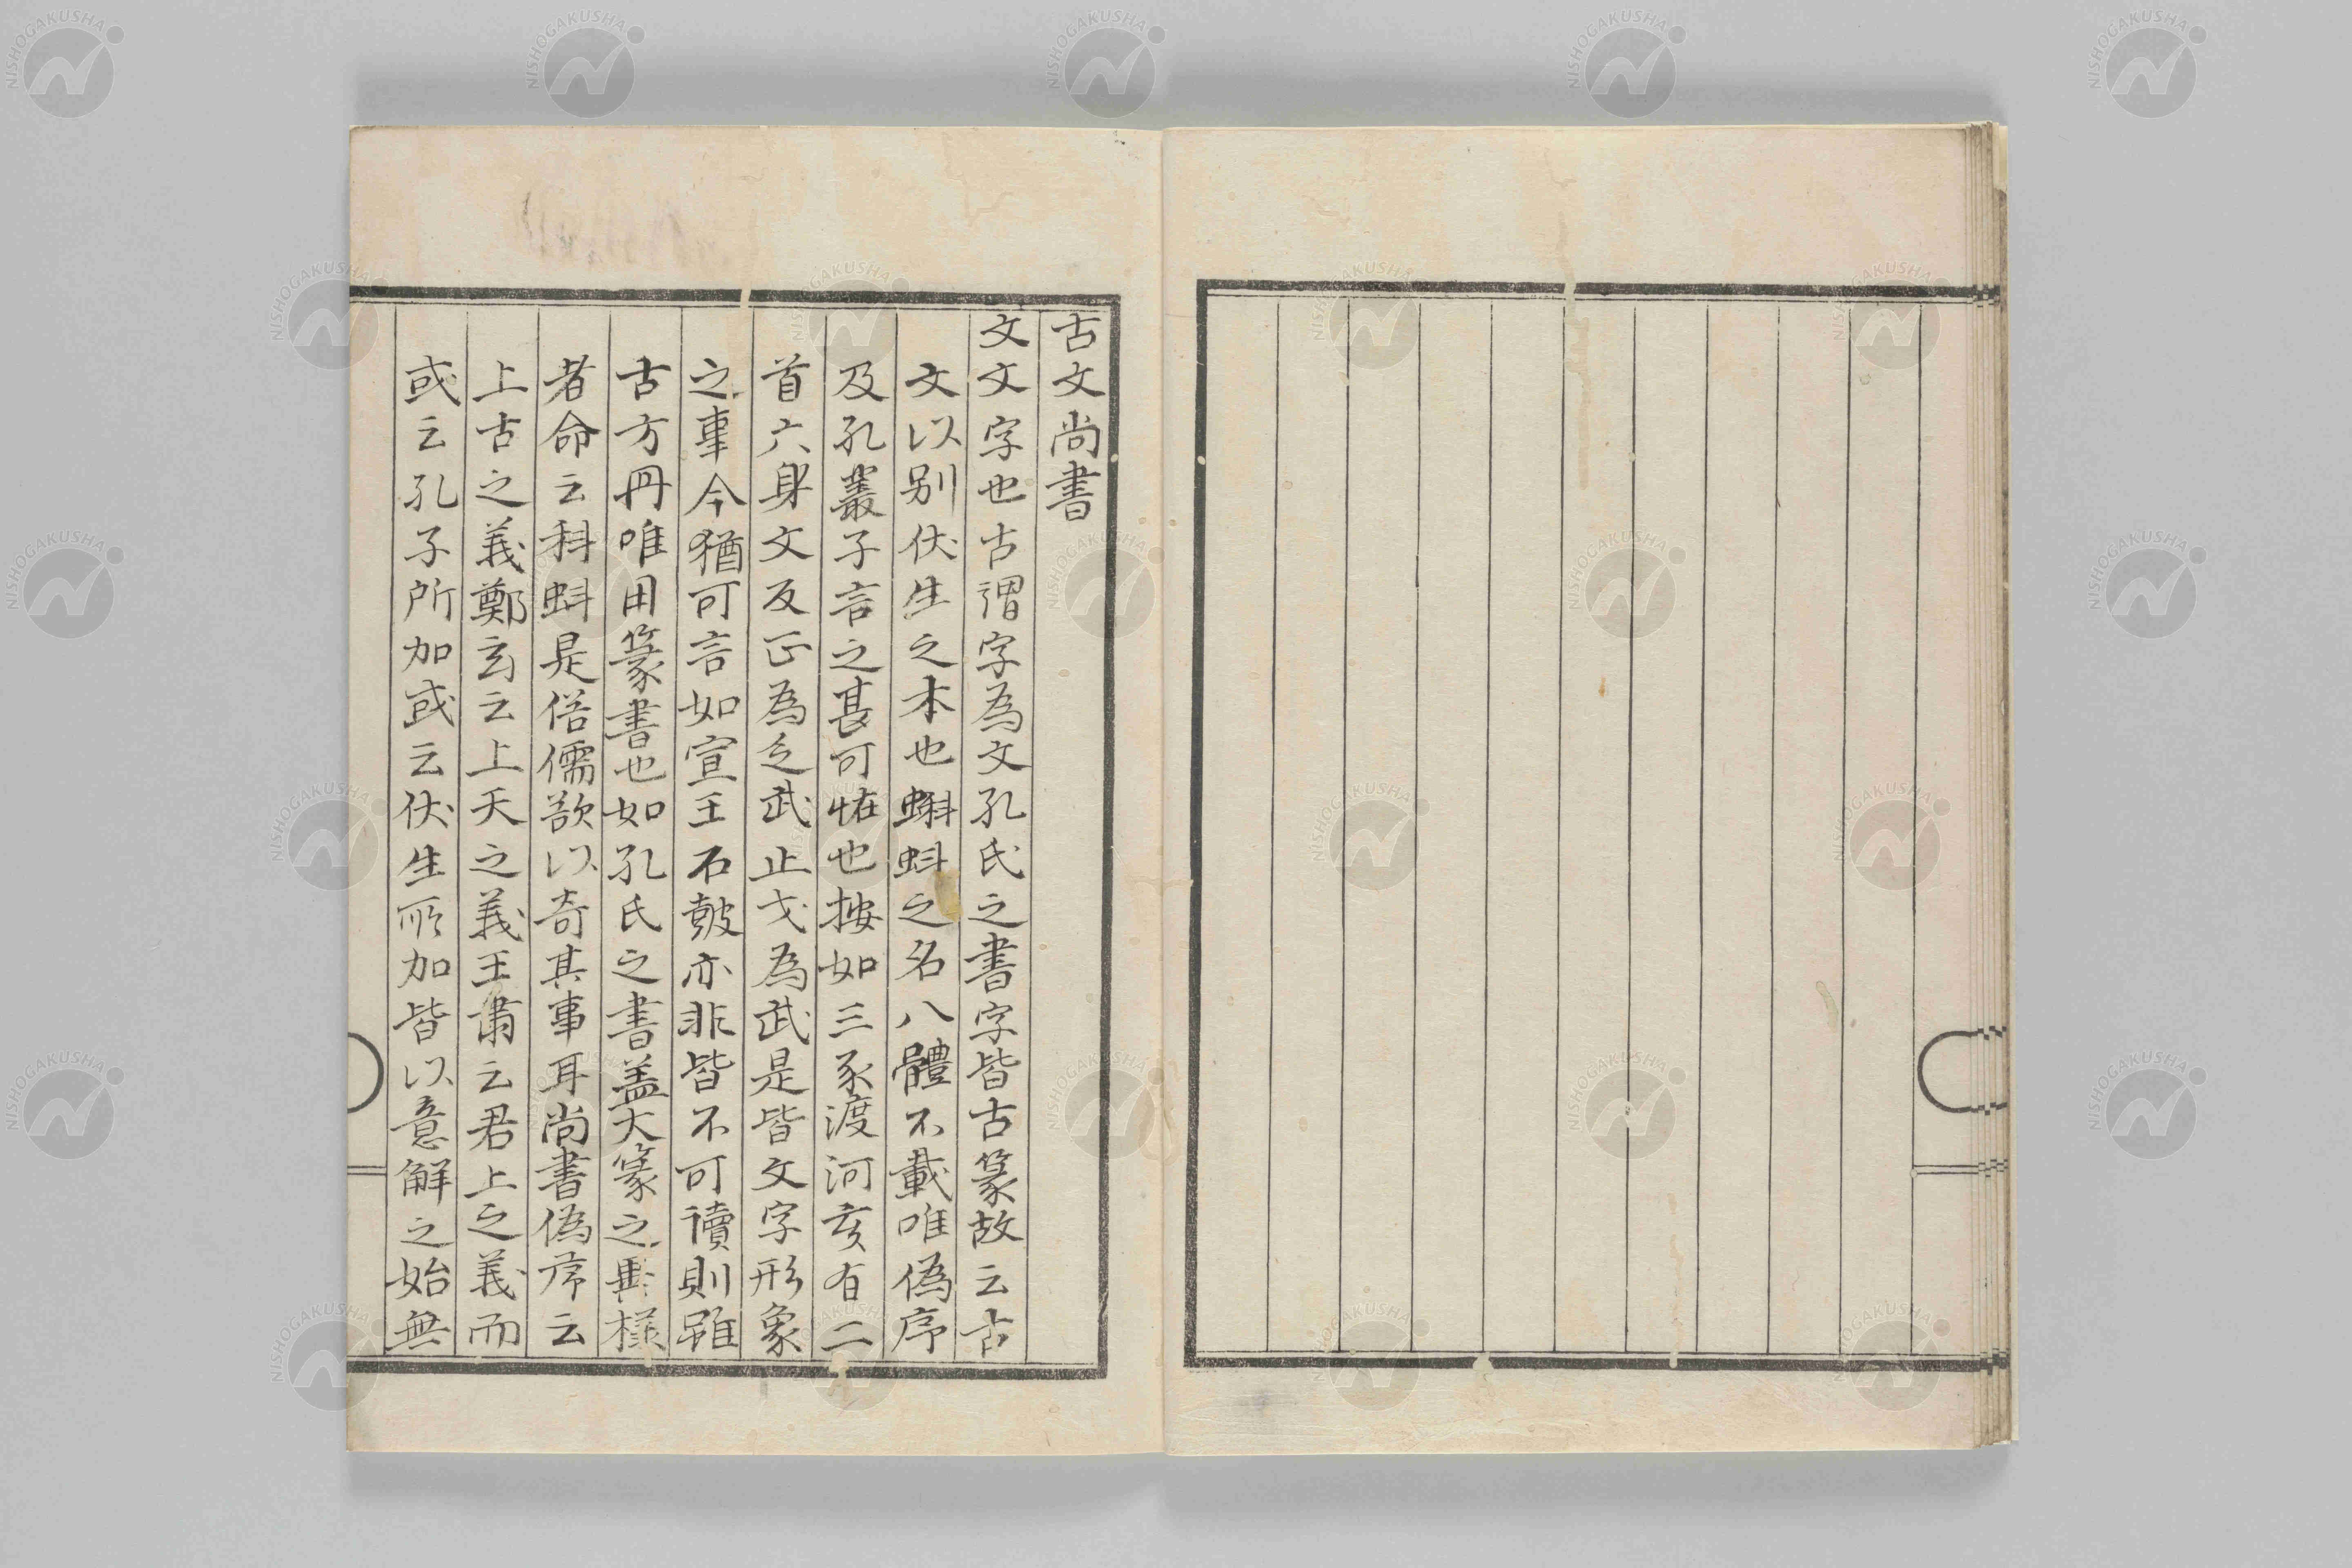 古文尚書
文文字也古謂字為文孔氏之書字皆古篆故云古
文以別伏生之本也蝌蚪之名八體不載唯偽序
及孔叢子言之甚可怪也按如三豕渡河亥有二
首六身文反正為乏武止戈為武是皆文字形象
之事今猶可言如宣王石皷亦非皆不可讀則雖
古方冊唯用篆書也如孔氏之書盖大篆之異樣
者命云科蚪是俗儒欲以奇其事耳尚書偽序云
上古之義鄭玄云上天之義王肅云君上之義而
或云孔子所加或云伏生所加皆以意解之始無
NISHOGAKUSHA